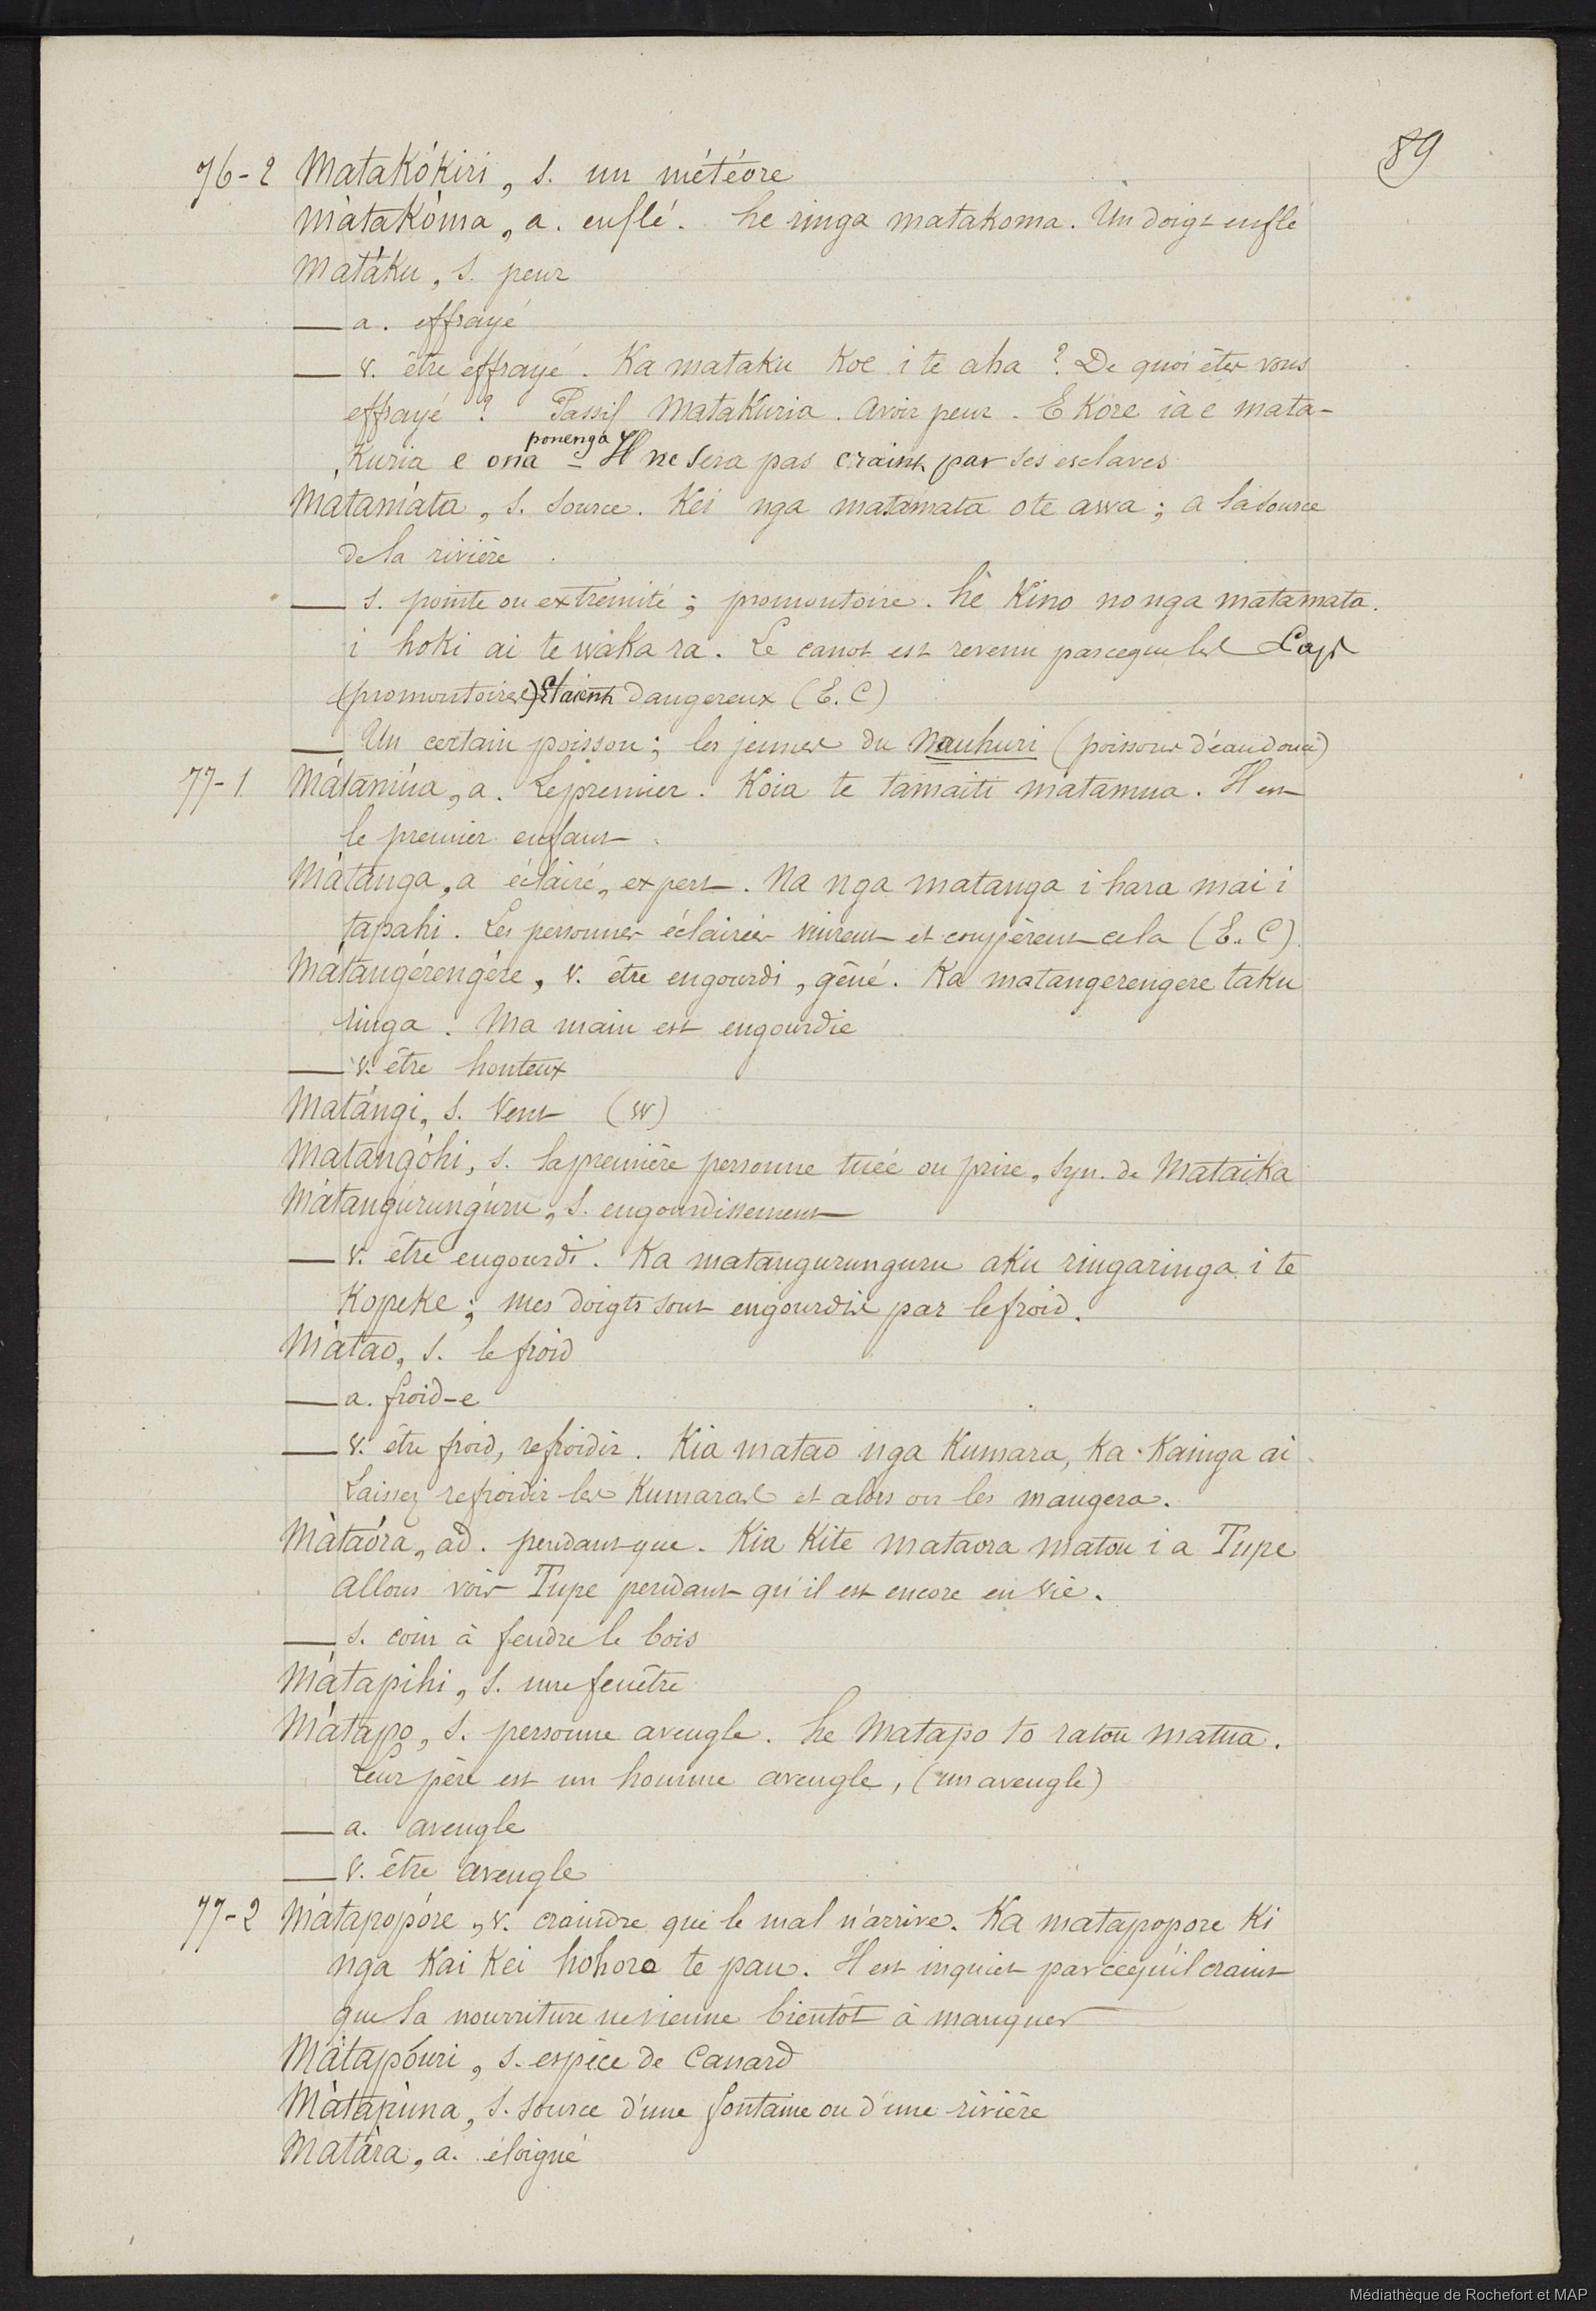 89
76-2 Matakókiri, s. un météore
Màtakóma, a. enflé. he ringa matakoma. Un doigt enflé
Matáku, s. peur
— a. effrayé
— v. être effrayé. Ka mataku koe i te aha? De quoi êtes vous
effrayé? Passif Matakuria. avoir peur. E Kore ia e mata-
kuria e ona ponenga - Il ne sera pas craint par ses esclaves
Mátamáta, s. source. Kei nga matamata o te awa; a la source
de la rivière.
— s. pointe ou extrémité; promontoire. he Kino no nga matamata.
i hoki ai te waka ra. Le canot est revenu parceque les Caps
(promontoires) étaient dangereux (E. C)
— Un certain poisson; les jeunes du Nauhuri (poissons d'eau douce)
77-1. Mátamúa, a. Le premier. Koia te tamaiti màtamua. Il est
le premier enfant.
Mátanga, a éclairé, expert. Na nga matanga i hara mai i
tapahi. Les personnes éclairées vinrent et coupèrent cela (E. C).
Mátangérengére, v. être engourdi, gêné. Ka matangerengere taku
ringa. Ma main est engourdie
— v. être honteux
Matángi, s. Vent (W)
Matangóhi, s. la première personne tuée ou prise, Syn. de Mataika
Mátangúrungúru, s. engourdissement
— v. être engourdi. Ka matangurunguru aku ringaringa i te
Kopeke; mes doigts sont engourdis par le froid.
Màtao, s. le froid
— a. froid-e
— v. être froid, refroidir. Kia matao nga Kumara, ka Kainga ai
Laissez refroidir les Kumaras et alors on les mangera.
Màtaóra, ad. pendant que. Kia Kite mataora matou i a Tupe
allons voir Tupe pendant qu'il est encore en vie.
— s. coin à fendre le bois
Mátapihi, s. une fenêtre
Mátapo, s. personne aveugle. he Matapo to ratou matua.
Leur père est un homme aveugle, (un aveugle)
— a. aveugle
— v. être aveugle
77-2 Mátapopóre, v. craindre que le mal n'arrive. Ka matapopore Ki
nga Kai Kei hohoro te pau. Il est inquiet parcequ'il craint
que la nourriture ne vienne bientôt à manquer
Màtapóuri, s. espèce de Canard
Màtapùna, s. source d'une fontaine ou d'une rivière
Matàra, a. éloigné
Médiathèque de Rochefort et MAP